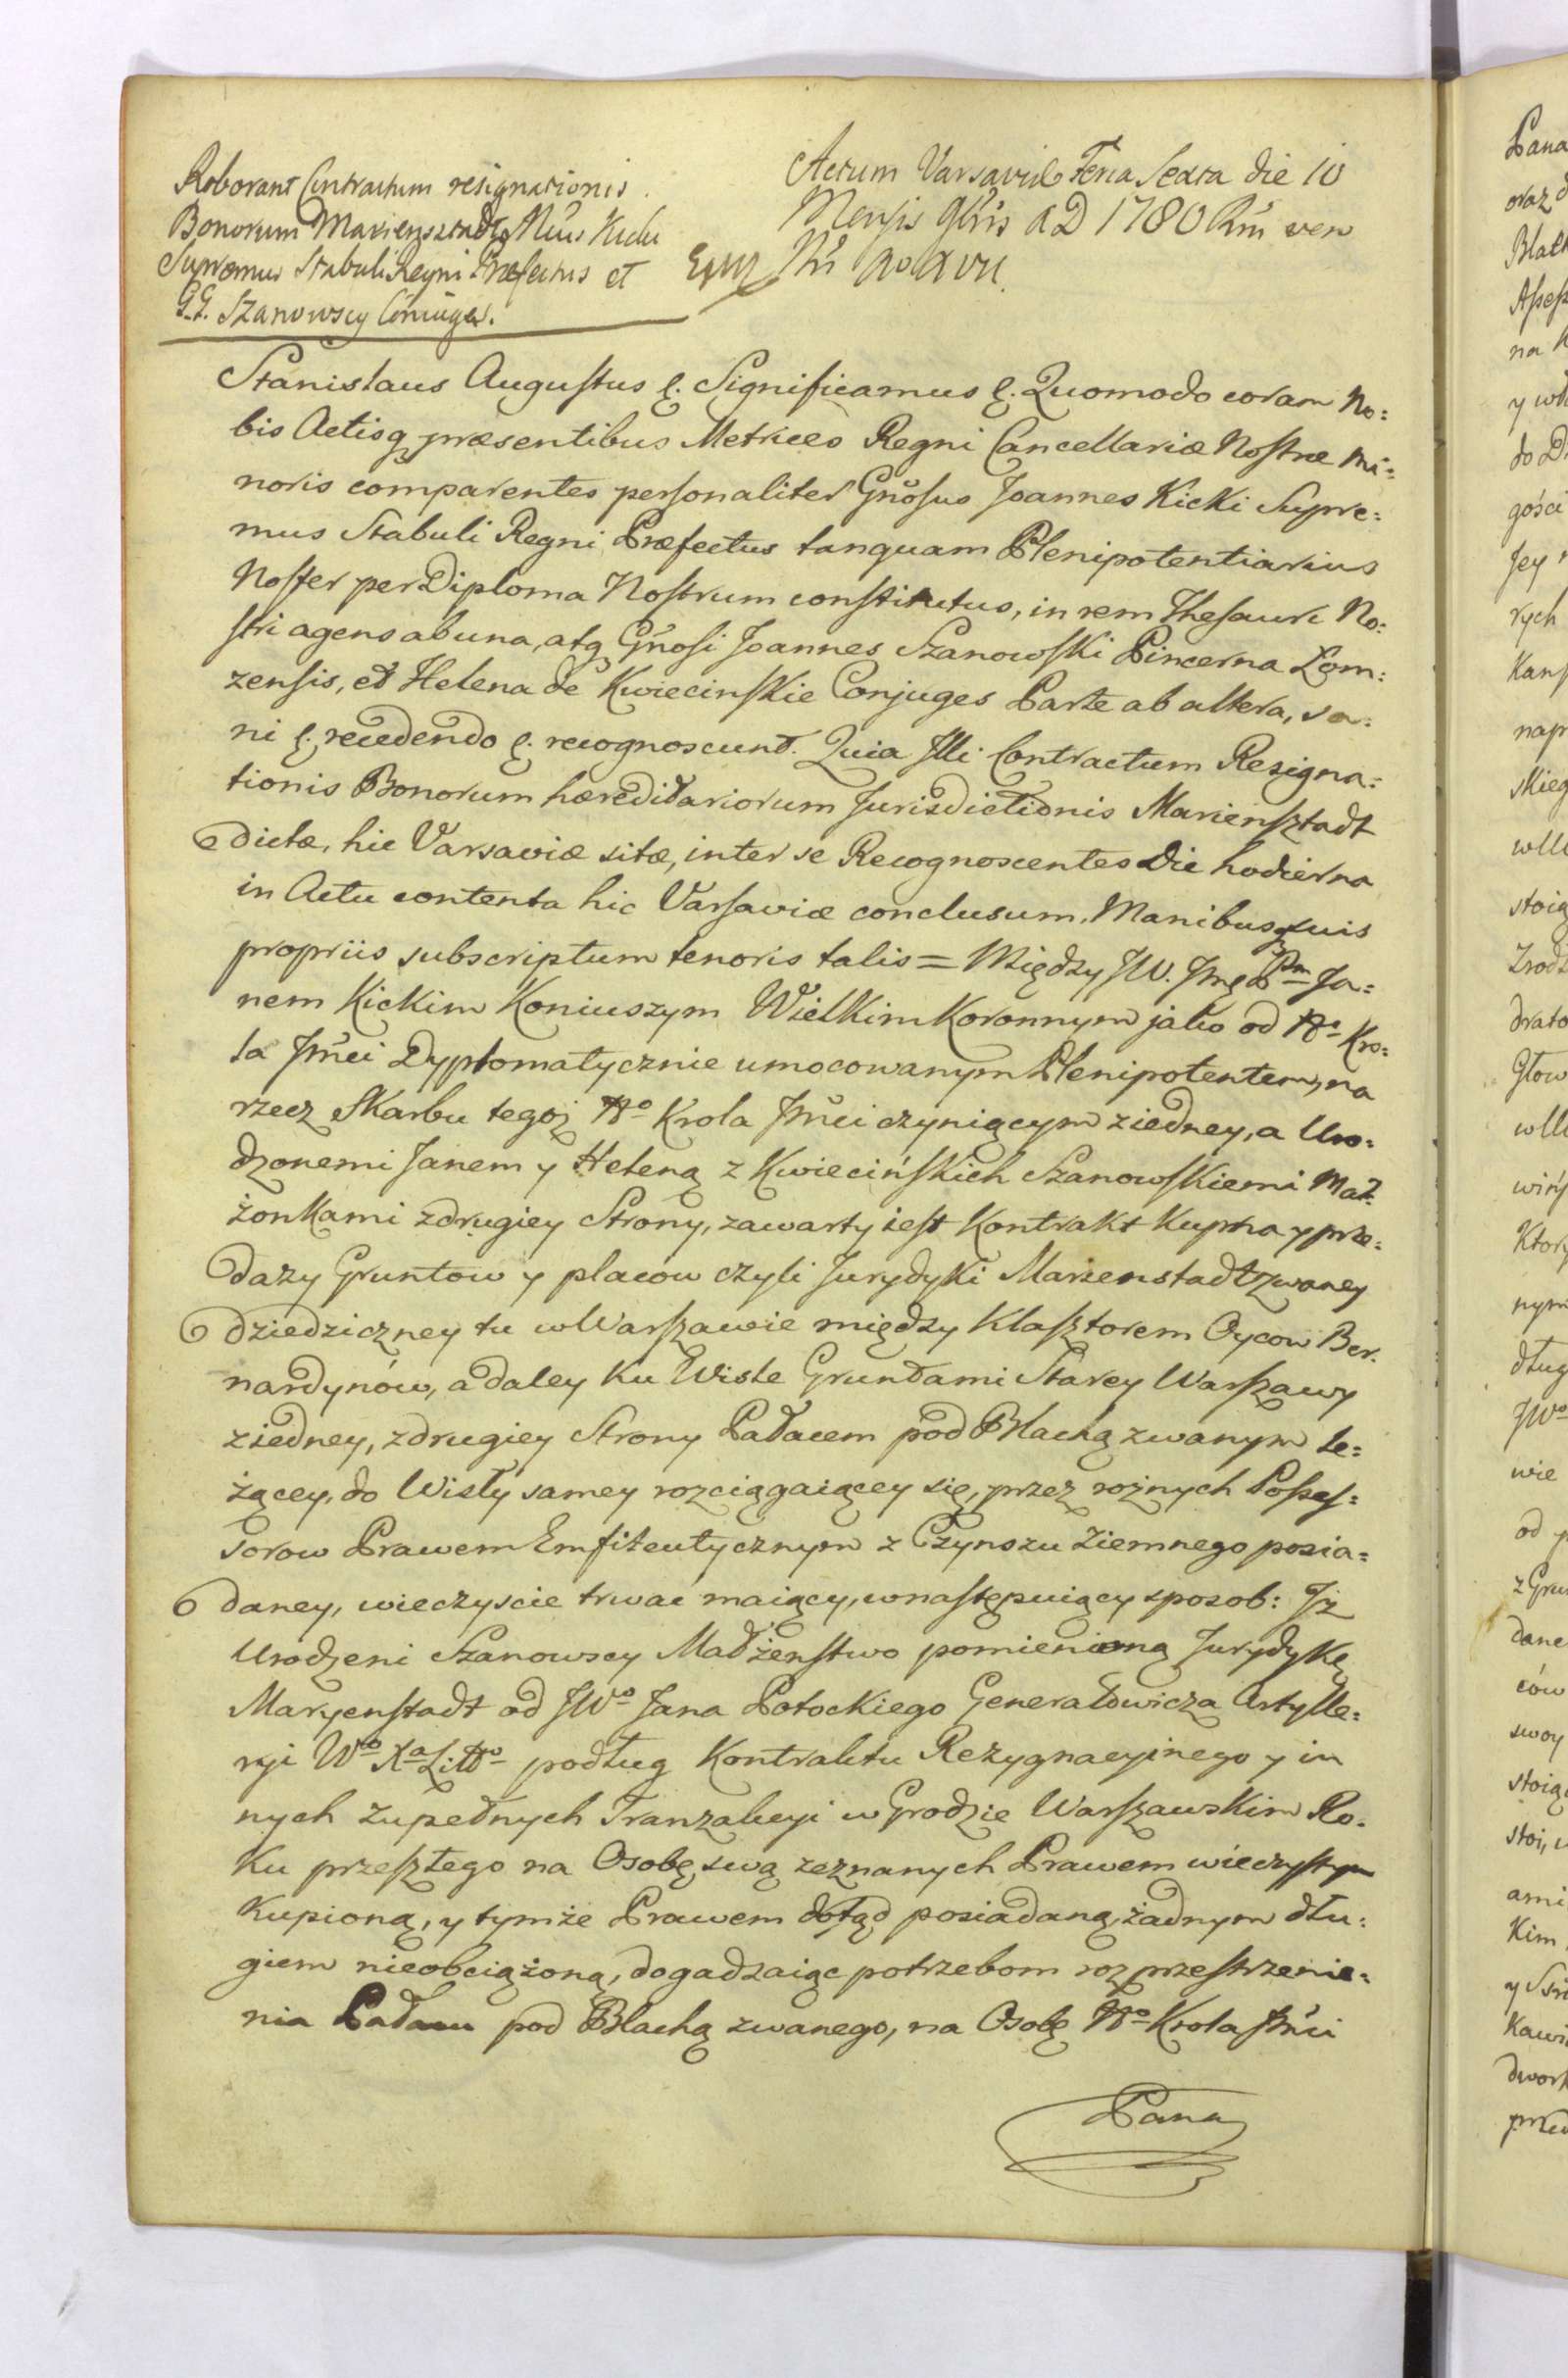 Roborant Contractum resignationis
Bonorum Mariensztadt Mcus Kicki
Supremus Stabuli Regni Præfectus et
G.G. Szanowscy Coniuges.
Actum Varsaviæ Feria Sexta die 10
Mensis 9bris AD 1780 Rni vero
Nri Ao XVII.
Stanislaus Augustus &. Significamus &. Quomodo coram No:
bis Actisq præsentibus Metrices Regni Cancellariæ Nostræ Mi:
noris comparentes personaliter Gnosus Joannes Kicki Supre:
mus Stabuli Regni Præfectus tanquam Plenipotentiarius
Noster per Diploma Nostrum constitutus, in rem Thesauri No:
stri agens ab una, atq Gnosi Joannes Szanowski Pincerna Łom:
zensis, et Helena de Kwiecinskie Conjuges Parte ab altera, sa:
ni &. recedendo &. recognoscunt. Quia Illi Contractum Resigna:
tionis Bonorum hæreditariorum Jurisdictionis Marienſztadt
dictæ, hic Varsaviæ sitæ, inter se Recognoscentes Die hodierna
in Actu contenta hic Varsaviæ conclusum, Manibusq suis
propriis subscriptum tenoris talis = Między JW. Jmę Pm Ja:
nem Kickim Koniuszym Wielkim Koronnym jako od No Kro:
la Jmci Dyplomatycznie umocowanym Plenipotentem, na
rzecz Skarbu tegoż No Krola Jmci czyniącym z iedney, a Uro:
dzonemi Janem y Heleną z Kwiecińskich Szanowskiemi Mał:
żonkami z drugiey Strony, zawarty iest Kontrakt Kupna y prze:
dazy Gruntow y placow czyli Jurydyki Marienstadt zwaney
dziedziczney tu w Warszawie między Klasztorem Oycow Ber:
nardynów, a daley ku Wisle Gruntami Starey Warszawy
z iedney, z drugiey Strony Pałacem pod Blachą zwanym le:
żącey, do Wisły samey rozciągaiącey się, przez rożnych Posses:
sorow Prawem Emfiteutycznym z Czynszu Ziemnego posia:
daney, wieczyscie trwac maiący, w następuiący sposob: Jż
Urodzeni Szanowscy Małżenstwo pomienioną Jurydykę
Maryenstadt od JWo Jana Potockiego Generałowicza Artylle:
ryi Wo Xa Litto podług Kontraktu Rezygnacyinego y in
nych zupełnych Tranzakcyi w Grodzie Warszawskim Ro:
ku przeszłego na Osobę swą zeznanych Prawem wieczystym
Kupioną, y tymże Prawem dotąd posiadaną, żadnym dłu:
giem nieobciążoną, dogadzaiąc potrzebom rozprzestrzenie:
nia Pałacu pod Blachą zwanego, na Osobę No Krola Jmci
Pana